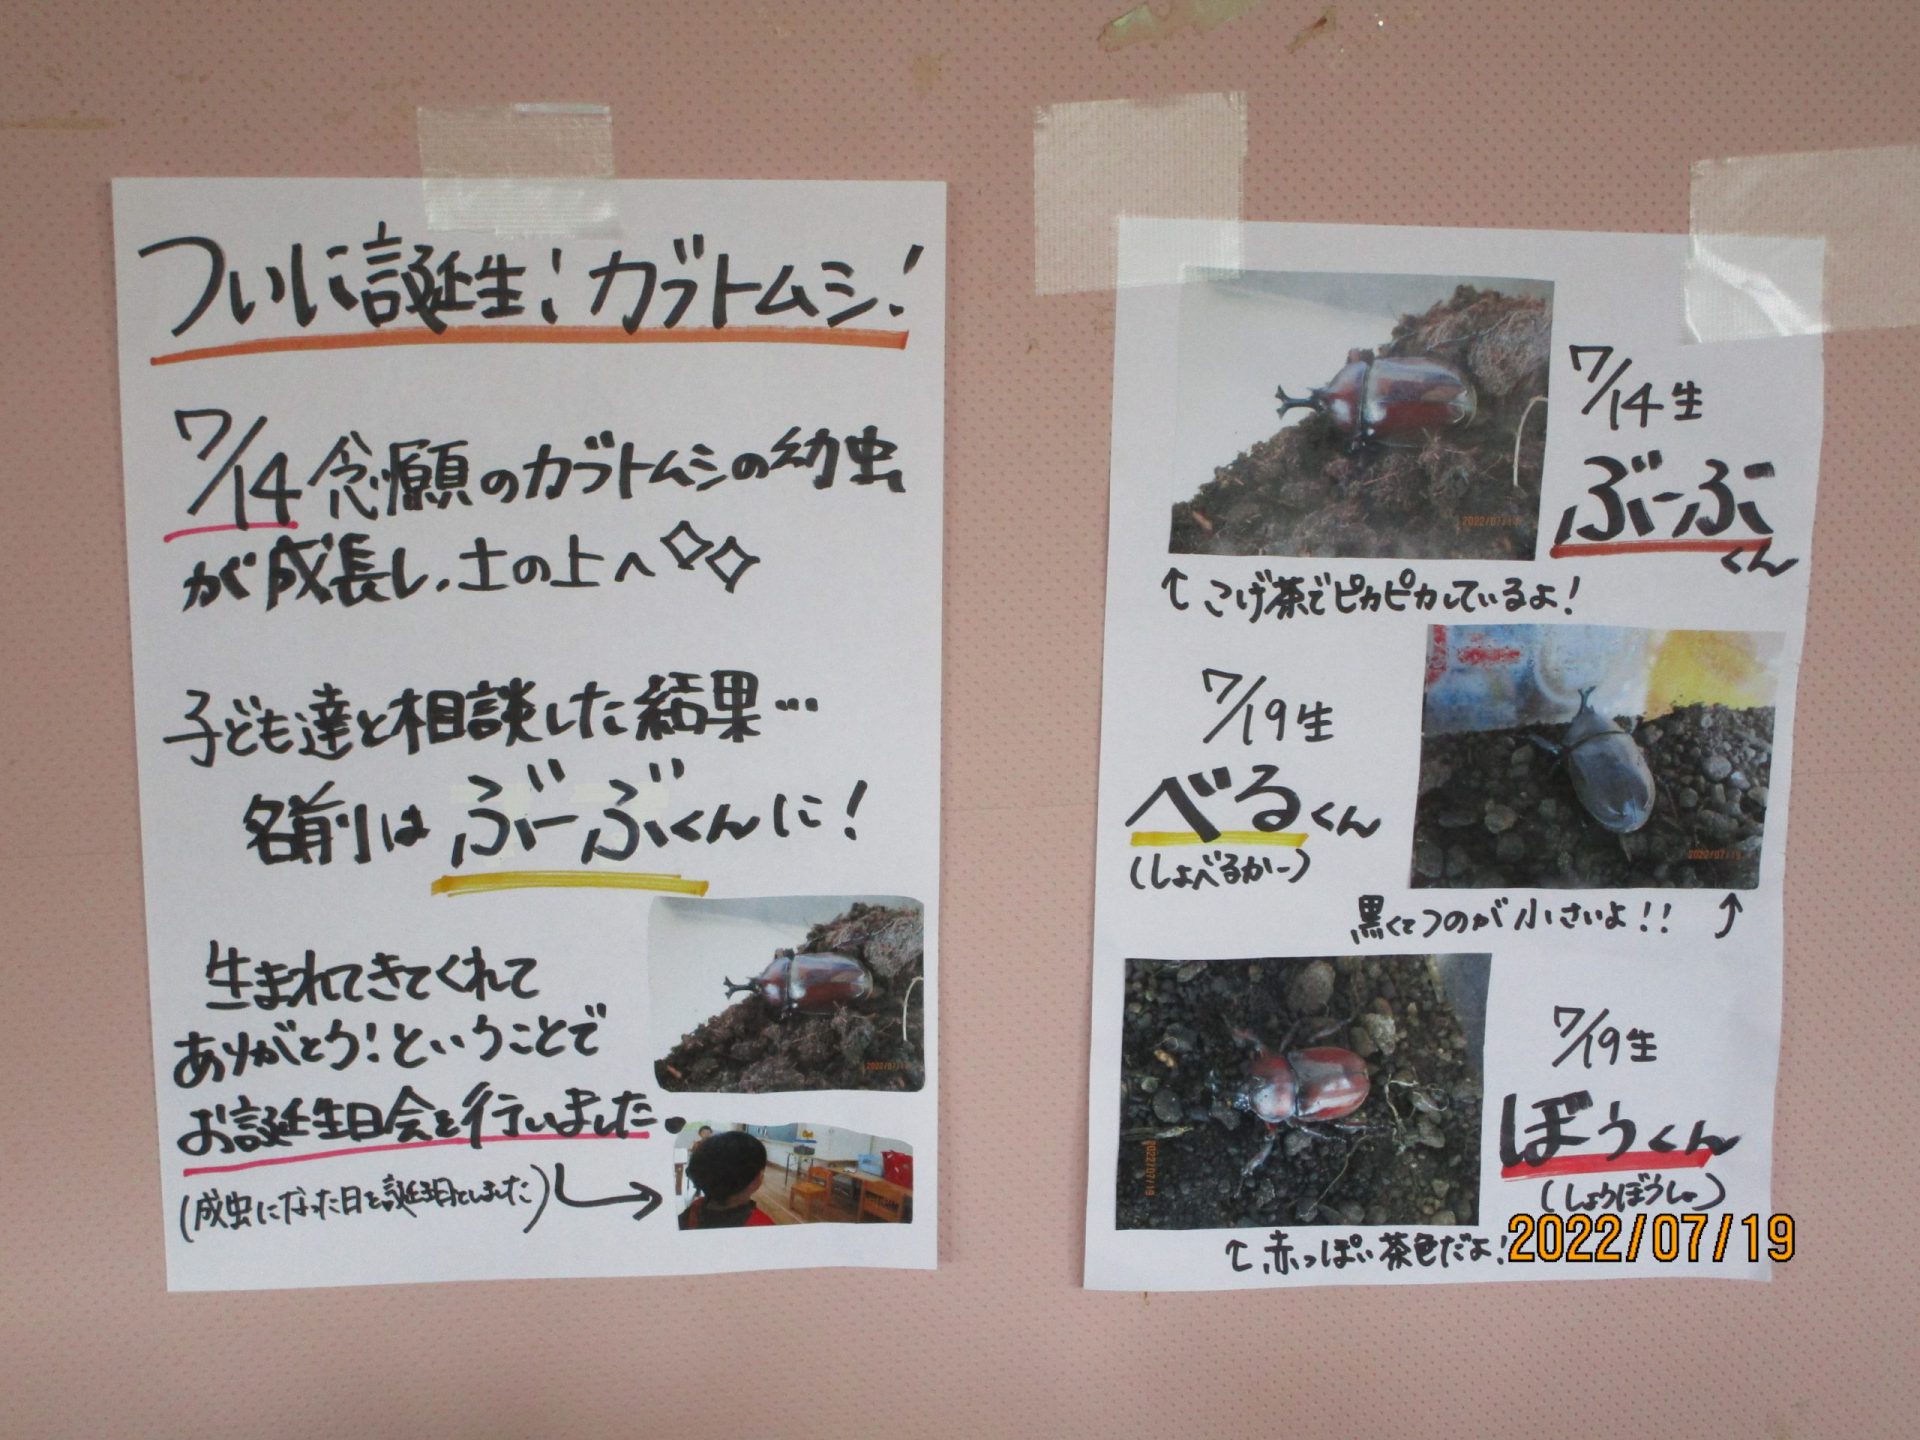 ついに誕生！カブトムシ！
7/14 念願のカブトムシの幼虫
が成長し、土の上へ◇◇
子ども達と相談した結果…
名前は ぶーぶくんに！
生まれてきてくれて
ありがとう！ということで
お誕生日会を行いました。
(成虫になった日を誕生日としました)
2022/07/14
7/14生
ぶーぶ
くん
2022/07/14
↑こげ茶でピカピカしているよ！
7/19生
べるくん
(しょべるかー)
2022/07/19
黒くてつのが小さいよ！！↑
7/19生
ぼうくん
(しょうぼうしゃ)
2022/07/19
↑赤っぽい茶色だよ！
2022/07/19